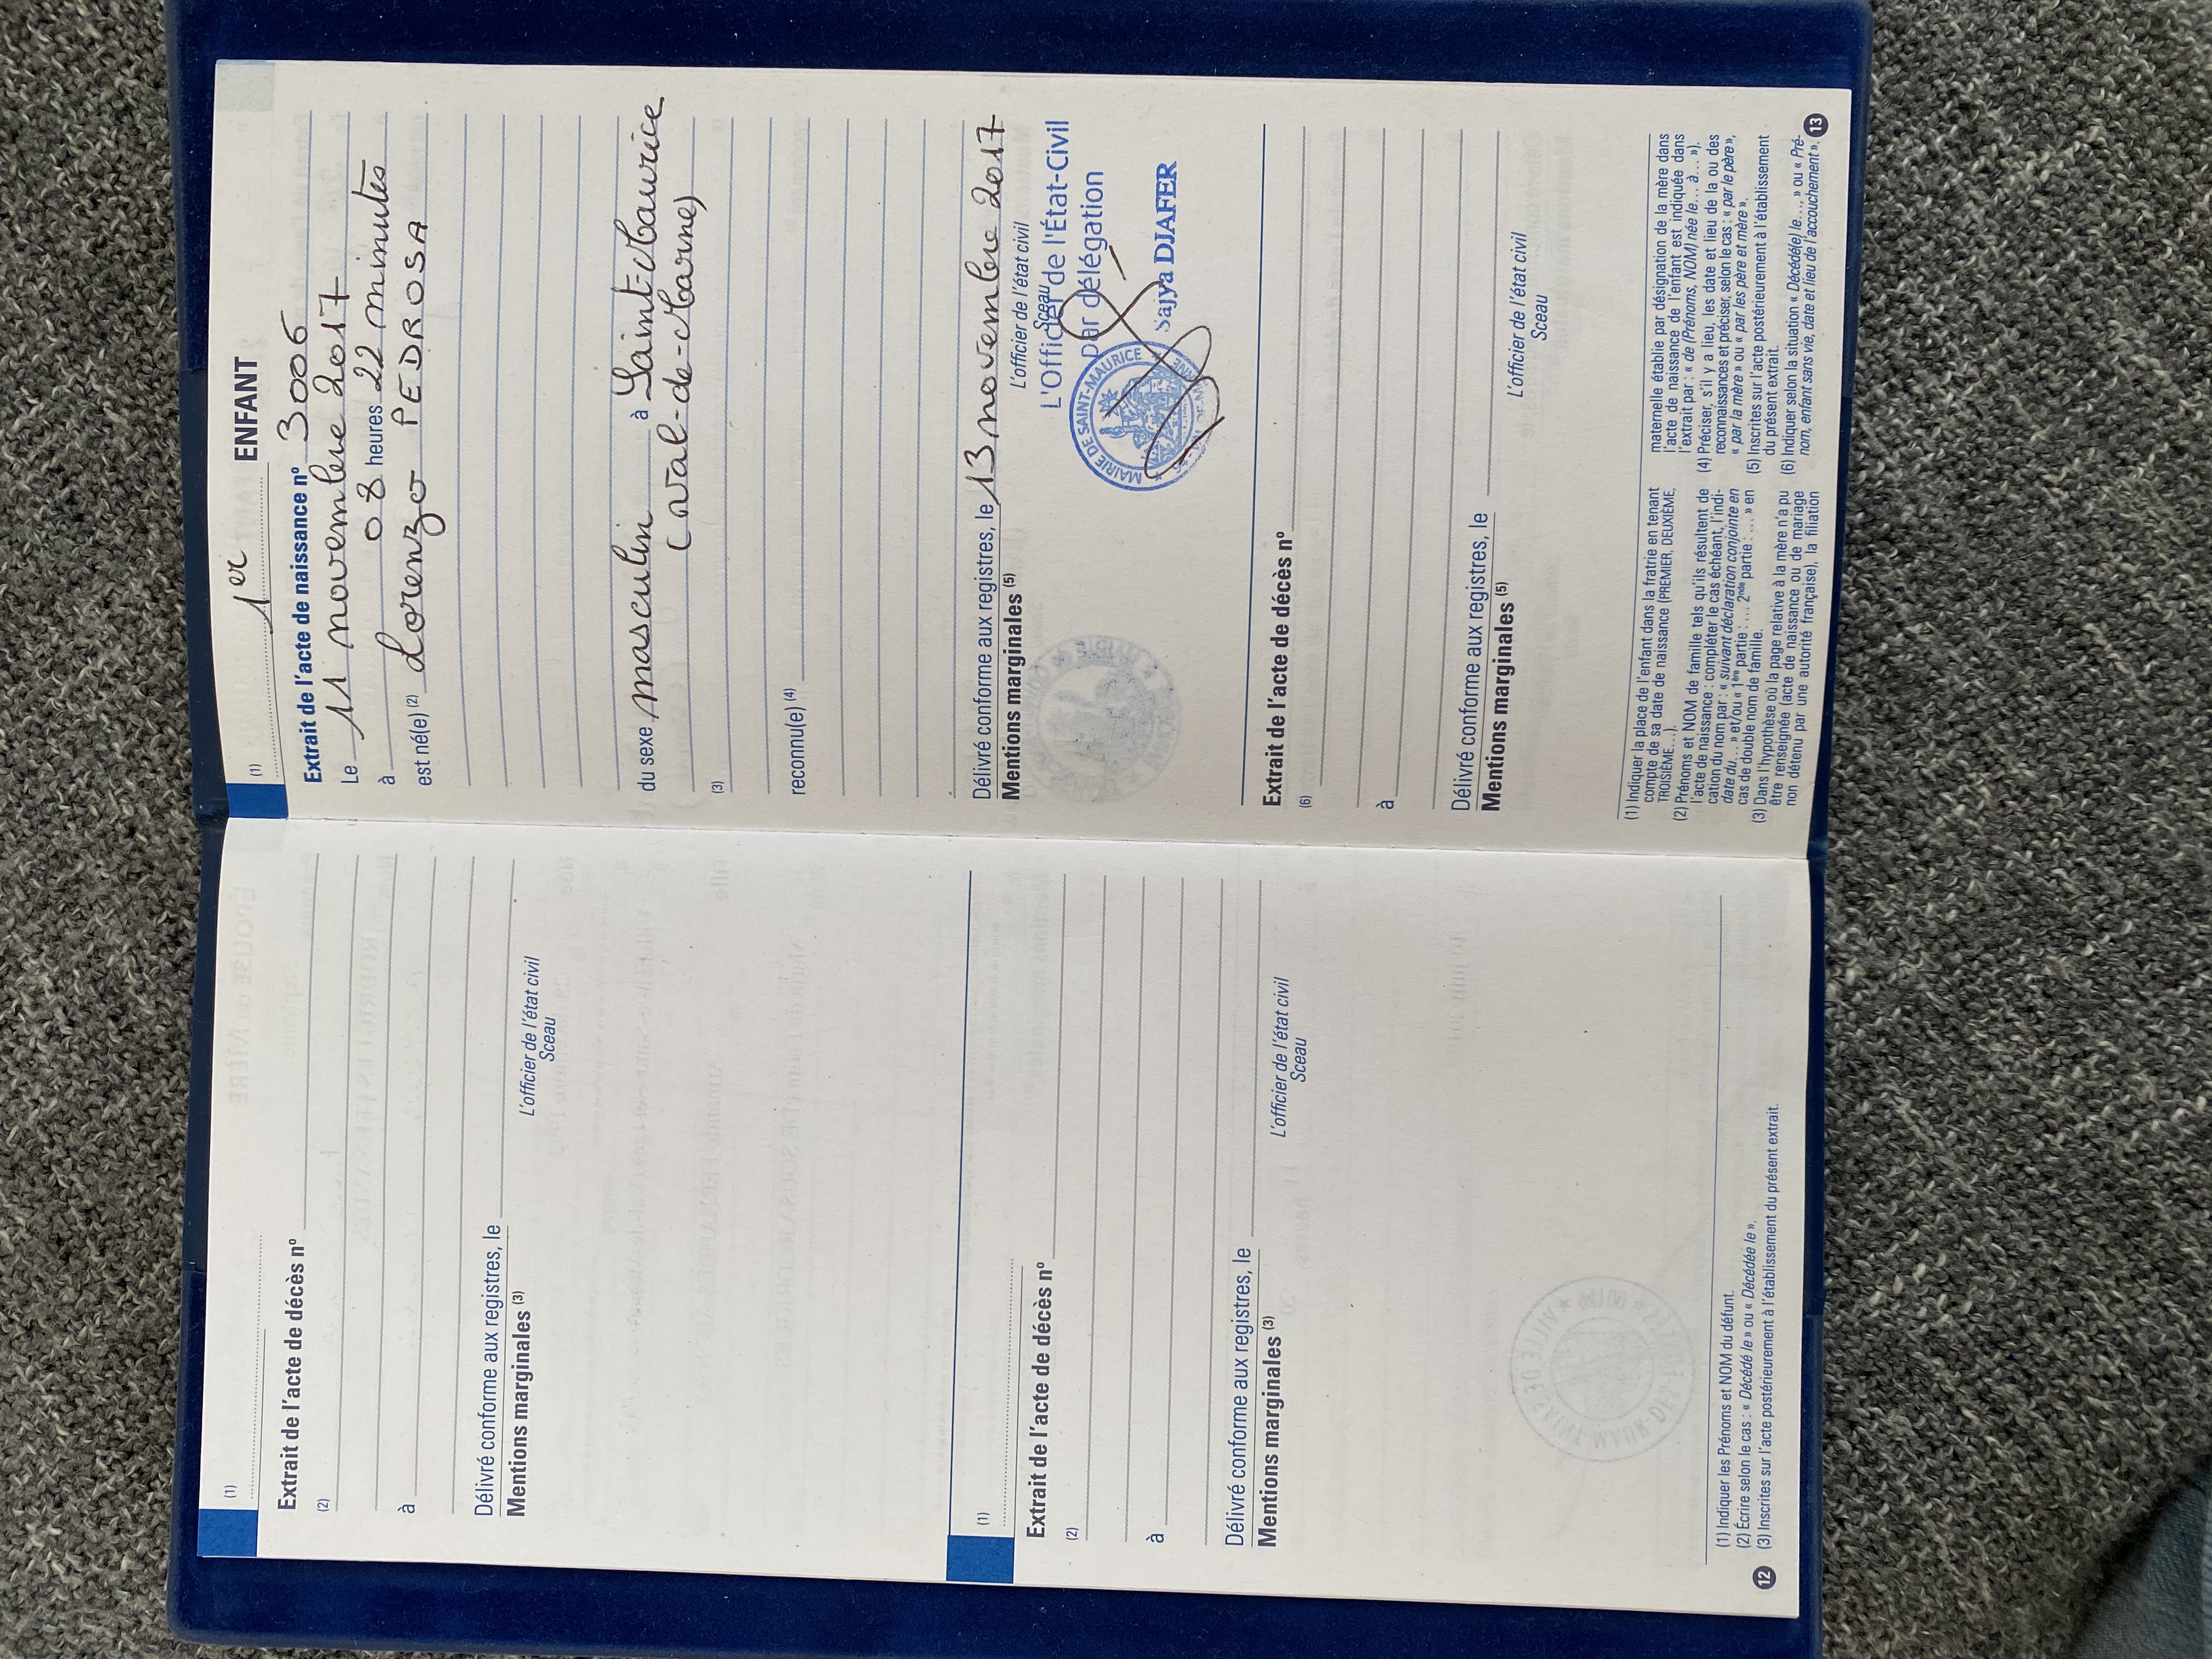 (1)
Extrait de l'acte de décès nº
(2)
à
Délivré conforme aux registres, le
Mentions marginales (3)
L'officier de l'état civil
Sceau
(1)
Extrait de l'acte de décès nº
(2)
à
Délivré conforme aux registres, le
Mentions marginales (3)
L'officier de l'état civil
Sceau
(1) Indiquer les Prénoms et NOM du défunt.
(2) Écrire selon le cas : « Décédé le » ou « Décédée le ».
(3) Inscrites sur l'acte postérieurement à l'établissement du présent extrait.
12
(1) 1er ENFANT
Extrait de l'acte de naissance nº 3006
Le 11 novembre 2017
à 08 heures 22 minutes
est né(e) (2) Lorenzo PEDROSA
du sexe masculin à Saint-Maurice
(Val-de-Marne)
(3)
reconnu(e) (4)
Délivré conforme aux registres, le 13 novembre 2017
Mentions marginales (5)
L'officier de l'état civil
Sceau
L'Officier de l'État-Civil
par délégation
Sajya DJAFER
MAIRIE DE SAINT-MAURICE
Extrait de l'acte de décès nº
(6)
à
Délivré conforme aux registres, le
Mentions marginales (5)
L'officier de l'état civil
Sceau
(1) Indiquer la place de l'enfant dans la fratrie en tenant
compte de sa date de naissance (PREMIER, DEUXIÈME,
TROISIÈME...).
(2) Prénoms et NOM de famille tels qu'ils résultent de
l'acte de naissance : compléter le cas échéant, l'indi-
cation du nom par : « suivant déclaration conjointe en
date du... » et/ou « 1ère partie : ... 2nde partie : ... » en
cas de double nom de famille.
(3) Dans l'hypothèse où la page relative à la mère n'a pu
être renseignée (acte de naissance ou de mariage
non détenu par une autorité française), la filiation
maternelle établie par désignation de la mère dans
l'acte de naissance de l'enfant est indiquée dans
l'extrait par : « de (Prénoms, NOM) née le... à... »).
(4) Préciser, s'il y a lieu, les date et lieu de la ou des
reconnaissances et préciser, selon le cas : « par le père »,
« par la mère » ou « par les père et mère ».
(5) Inscrites sur l'acte postérieurement à l'établissement
du présent extrait.
(6) Indiquer selon la situation « Décédé(e) le..., » ou « Pré-
nom, enfant sans vie, date et lieu de l'accouchement ».
13